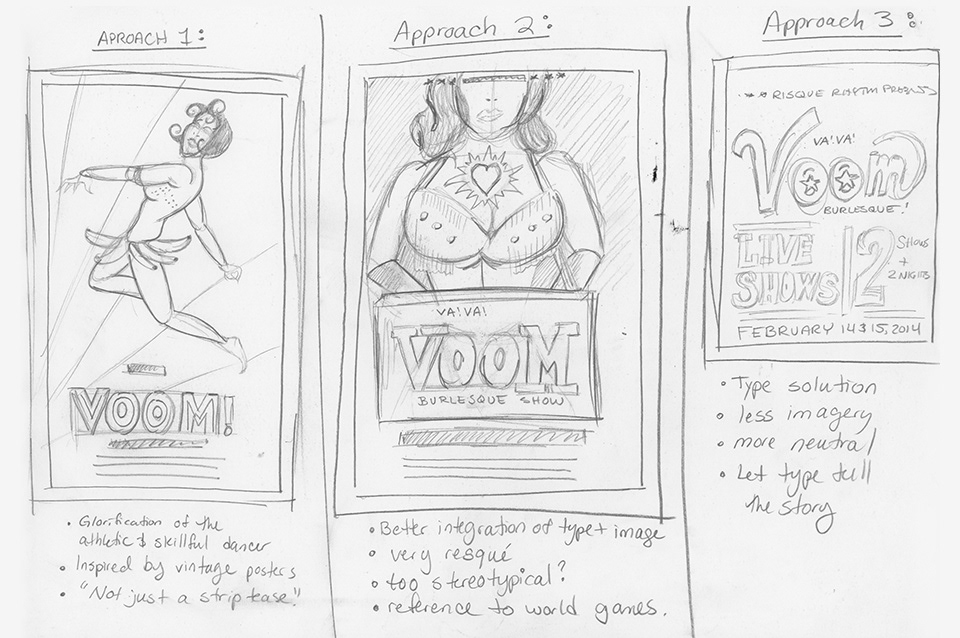 APROACH 1:
VOOM!
• Glorification of the
athletic & skillful dancer
• Inspired by vintage posters
• "Not just a strip tease."
Approach 2:
VA!VA!
VOOM
BURLESQUE SHOW
• Better integration of type + image
• very resqué
• too stereotypical?
• reference to world games.
Approach 3:
RISQUE RHYTM PRESENTS
VA!VA!
Voom
BURLESQUE!
LIVE
SHOWS
2
SHOWS
+
2 NIGHTS
FEBRUARY 14 & 15, 2014
• Type solution
• less imagery
• more neutral
• Let type tell
the story